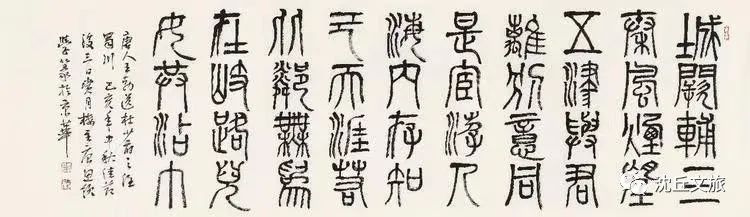 城闕輔三
秦風煙望
五津與君
離別意同
是宦游人
海内存知
己天涯若
比鄰無為
在岐路兒
女共沾巾
唐人王勃送杜少府之任
蜀川 亥年中秋佳節
後三日賞月樓主唐
學篆於京華
沈丘文旅